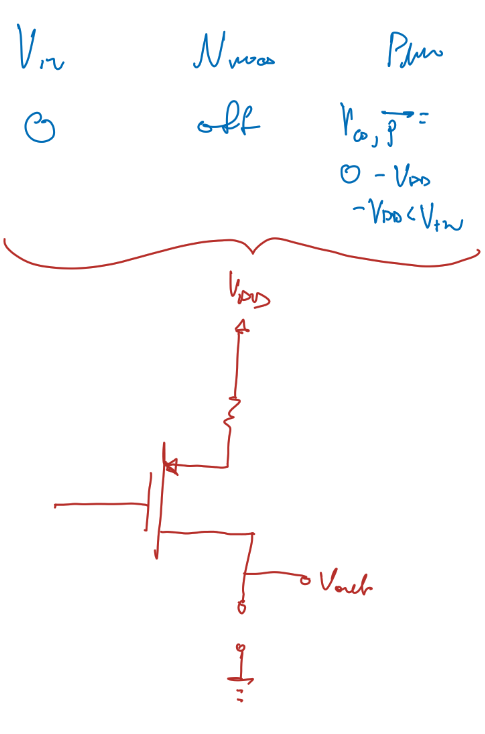 Vin Nmos Pmos
0 off VGS, p =
0 - VDD
-VDD < Vtn
VDD
Vout